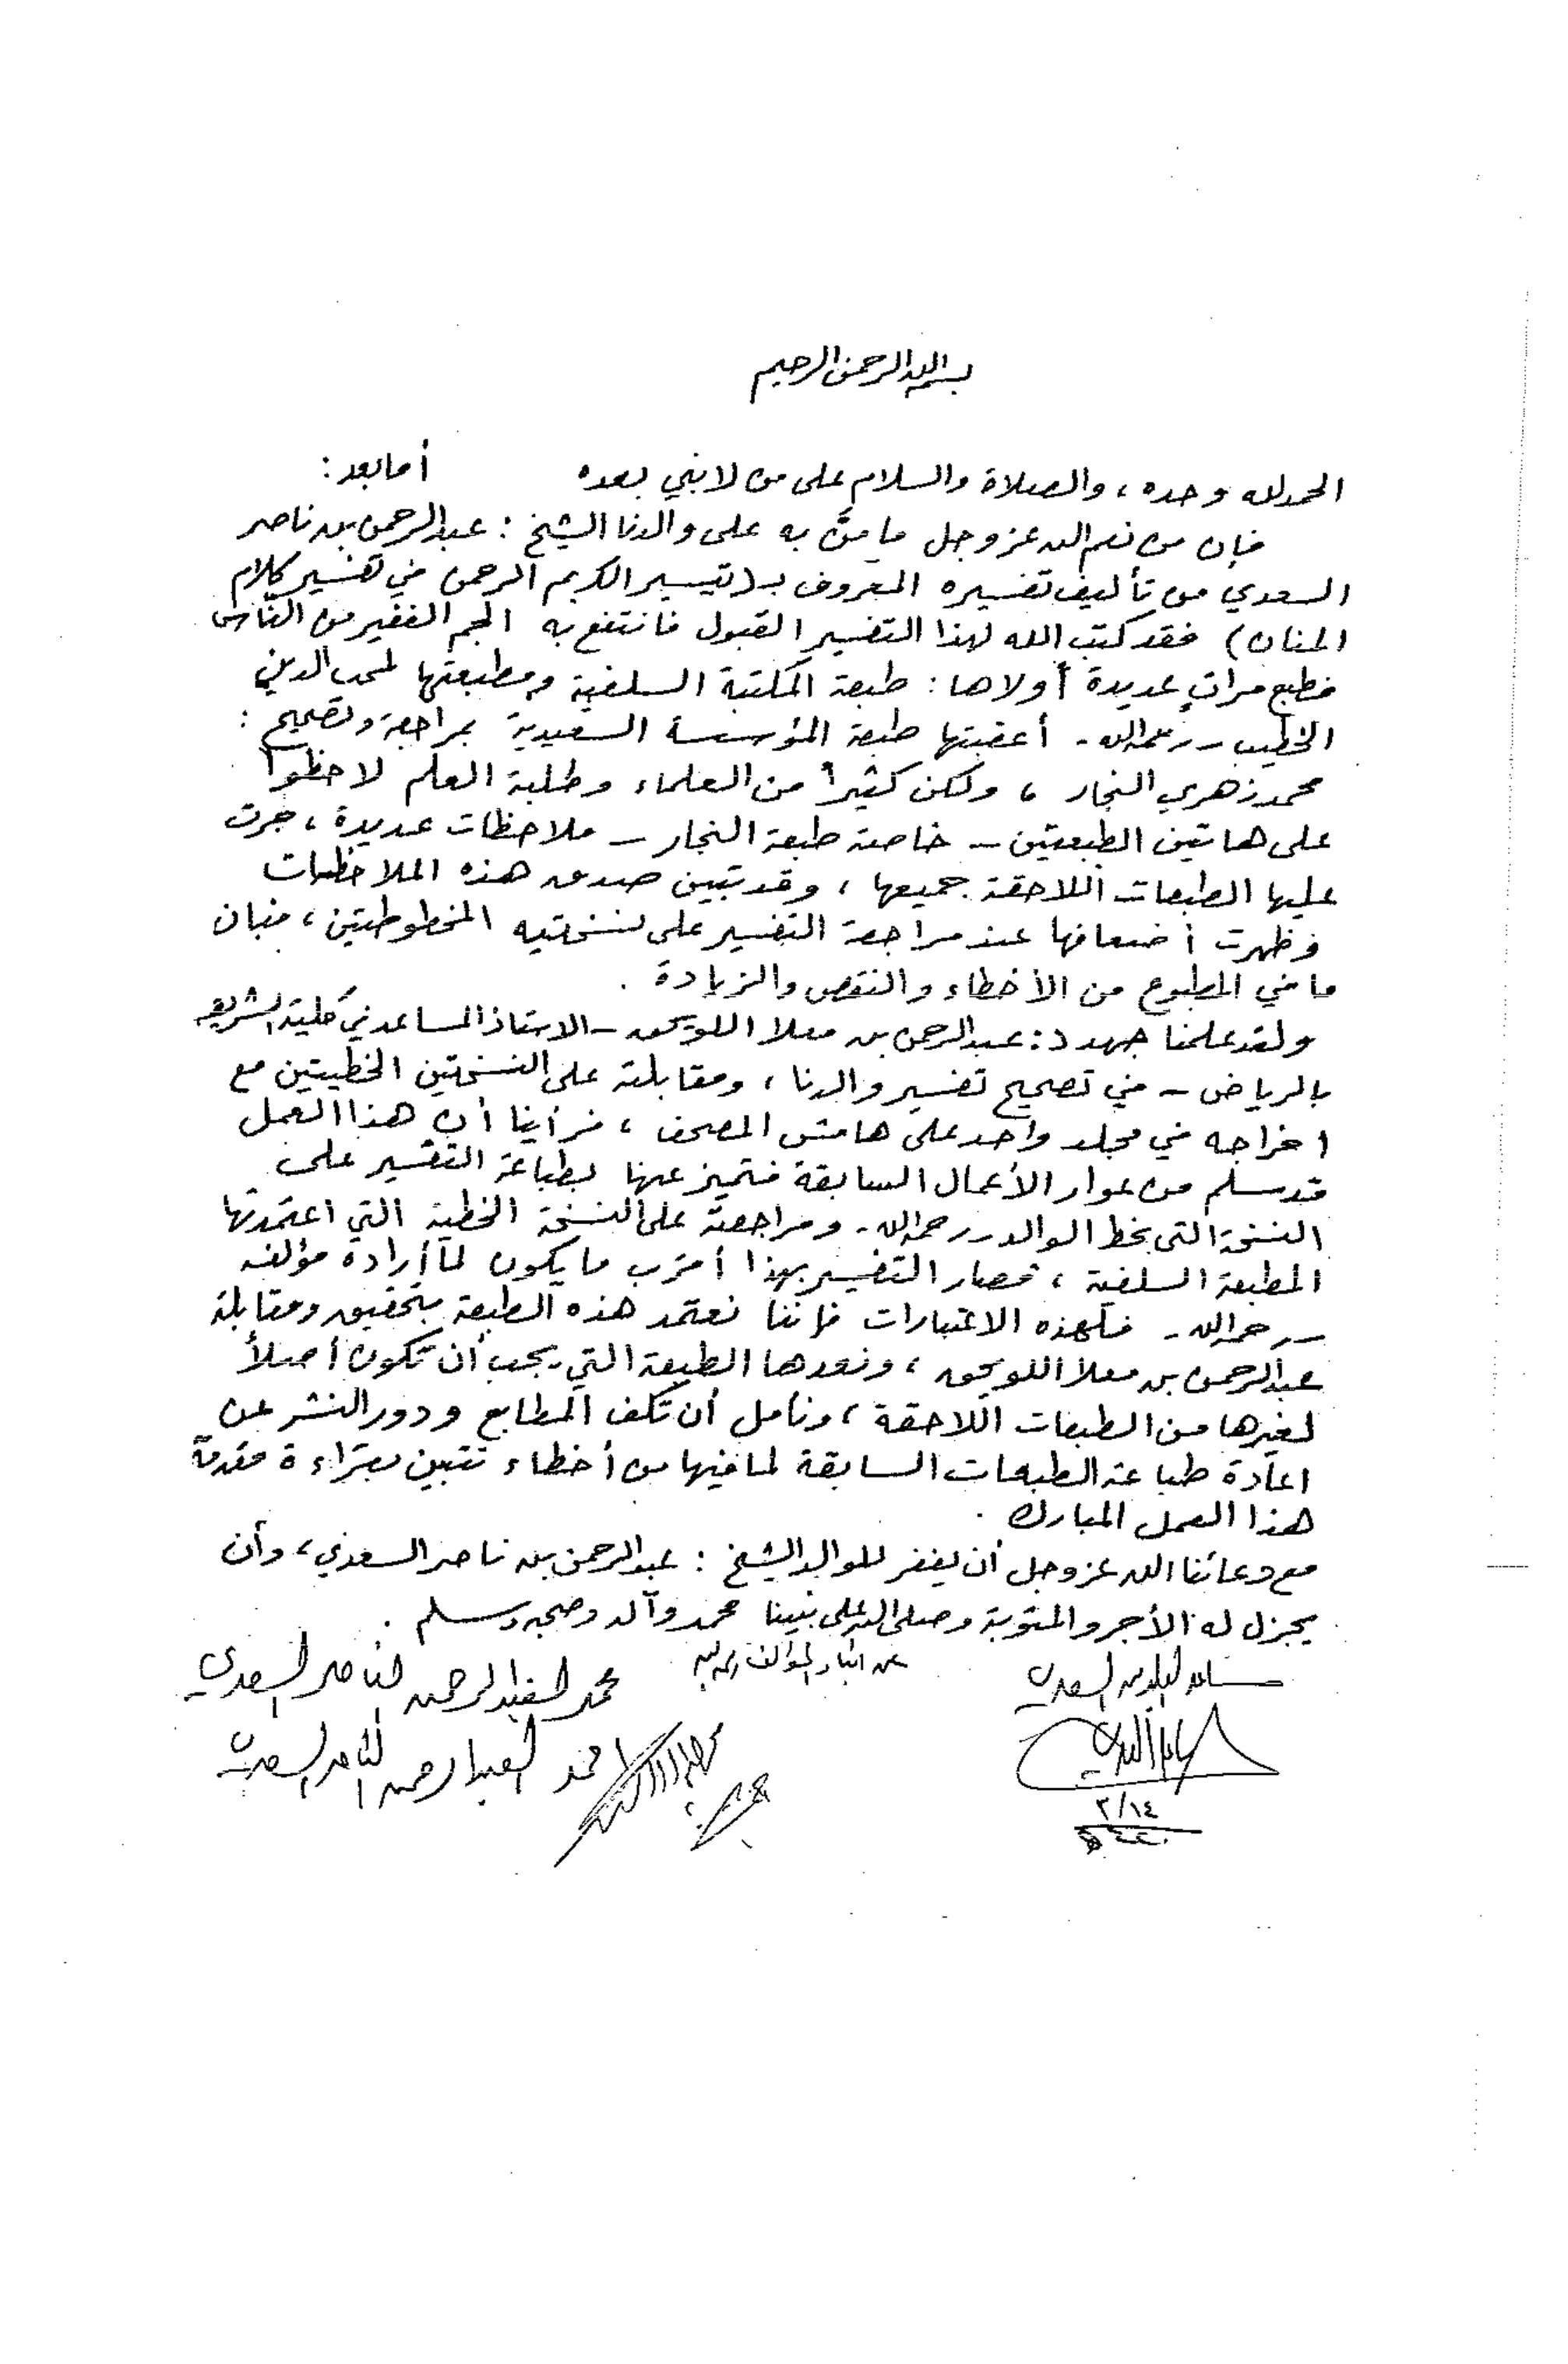 بسم الله الرحمن الرحيم
الحمد لله وحده، والصلاة والسلام على من لا نبي بعده أما بعد:
فإن من نعم الله عز وجل ما منَّ به على والدنا الشيخ: عبدالرحمن بن ناصر
السعدي من تأليف تفسيره المعروف بـ (تيسير الكريم الرحمن في تفسير كلام
المنان) فقد كتب الله لهذا التفسير القبول فانتفع به الجم الغفير من الناس
فطبع مراتٍ عديدة أولاها: طبعة المكتبة السلفية ومطبعتها لمحب الدين
الخطيب - رحمه الله - أعقبتها طبعة المؤسسة السعيدية بمراجعة وتصحيح:
محمد زهري النجار، ولكن كثيراً من العلماء وطلبة العلم لاحظوا
على هاتين الطبعتين - خاصة طبعة النجار - ملاحظات عديدة، جرت
عليها الطبعات اللاحقة جميعها، وقد تبين صدق هذه الملاحظات
وظهرت أضعافها عند مراجعة التفسير على نسختيه المخطوطتين، فبان
ما في المطبوع من الأخطاء والنقص والزيادة.
ولقد علمنا جهد د: عبدالرحمن بن معلا اللويحق - الاستاذ المساعد في كلية الشريعة
بالرياض - في تصحيح تفسير والدنا، ومقابلته على النسختين الخطيتين مع
اخراجه في مجلد واحد على هامش المصحف، فرأينا أن هذا العمل
قد سلم من عوار الأعمال السابقة فتميز عنها بطباعة التفسير على
النسخة التي بخط الوالد - رحمه الله - ومراجعته على النسخة الخطية التي اعتمدتها
المطبعة السلفية، فصار التفسير بهذا أقرب ما يكون لما أراده مؤلفه
- رحمه الله - فلهذه الاعتبارات فإننا نعتمد هذه الطبعة بتحقيق ومقابلة
عبدالرحمن بن معلا اللويحق، ونعدها الطبعة التي يجب أن تكون أصلاً
لغيرها من الطبعات اللاحقة، ونأمل أن تكف المطابع ودور النشر عن
اعادة طباعة الطبعات السابقة لما فيها من أخطاء تتبين بقراءة مقدمة
هذا العمل المبارك.
مع دعائنا الله عز وجل أن يغفر للوالد الشيخ: عبدالرحمن بن ناصر السعدي، وأن
يجزل له الأجر والمثوبة وصلى الله على نبينا محمد وآله وصحبه وسلم.
عن ابناء المؤلف رحمه الله
محمد العبدالرحمن الناصر السعدي
احمد العبدالرحمن الناصر السعدي
٢/١٤